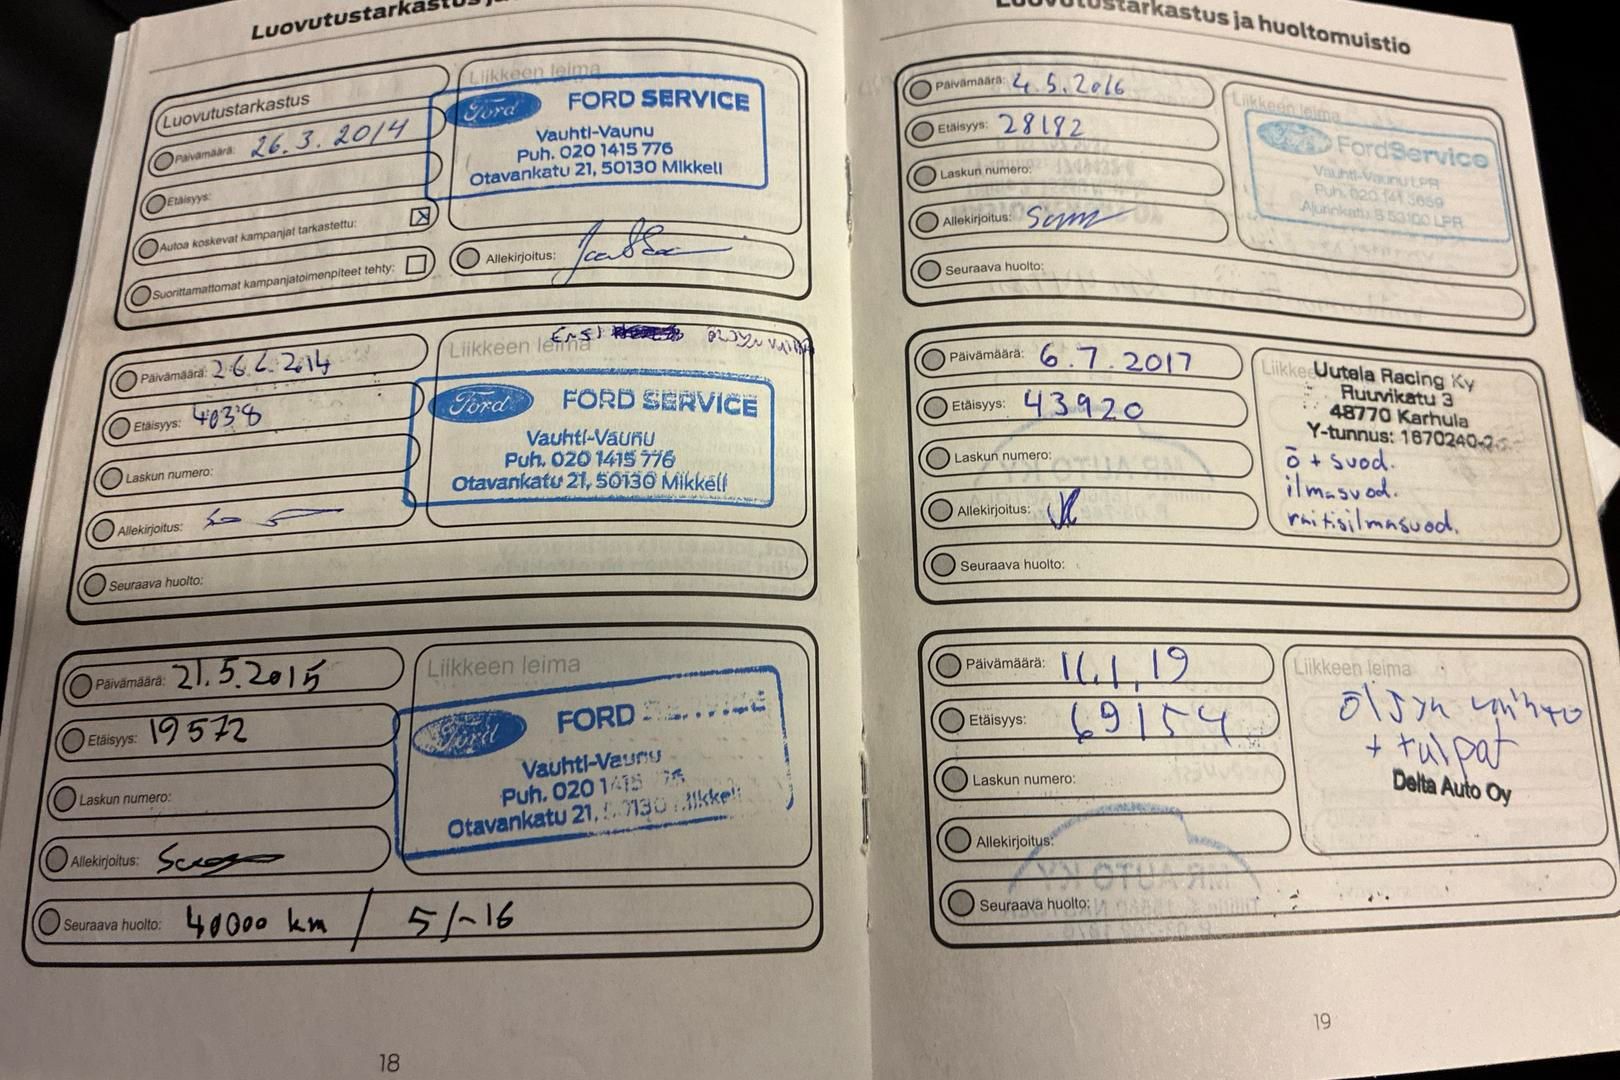 Luovutustarkastus
Luovutustarkastus
Päivämäärä: 26.3.2014
Etäisyys:
Autoa koskevat kampanjat tarkastettu:
Suorittamattomat kampanjatoimenpiteet tehty:
Liikkeen leima
Ford FORD SERVICE
Vauhti-Vaunu
Puh. 020 1415 776
Otavankatu 21, 50130 Mikkeli
Allekirjoitus:
Päivämäärä: 26.6.2014
Etäisyys: 4038
Laskun numero:
Allekirjoitus:
Seuraava huolto:
Liikkeen leima
Ensi öljyn
Ford FORD SERVICE
Vauhti-Vaunu
Puh. 020 1415 776
Otavankatu 21, 50130 Mikkeli
Päivämäärä: 21.5.2015
Etäisyys: 19572
Laskun numero:
Allekirjoitus:
Seuraava huolto: 40000 km / 5/-16
Liikkeen leima
Ford FORD SERVICE
Vauhti-Vaunu
Puh. 020 1415 776
Otavankatu 21, 50130 Mikkeli
18
Luovutustarkastus ja huoltomuistio
Päivämäärä: 4.5.2016
Etäisyys: 28192
Laskun numero:
Allekirjoitus:
Seuraava huolto:
Liikkeen leima
FordService
Vauhti-Vaunu LPR
Puh. 020 141 5659
Ajurinkatu 8 53100 LPR
Päivämäärä: 6.7.2017
Etäisyys: 43920
Laskun numero:
Allekirjoitus:
Seuraava huolto:
Uutela Racing Ky
Ruuvikatu 3
48770 Karhula
Y-tunnus: 1870240-2
ö + suod.
ilmasuod.
raitisilmasuod.
Päivämäärä: 11.1.19
Etäisyys: 69154
Laskun numero:
Allekirjoitus:
Seuraava huolto:
Liikkeen leima
öljyn vaihto
+ tulpat
Delta Auto Oy
19